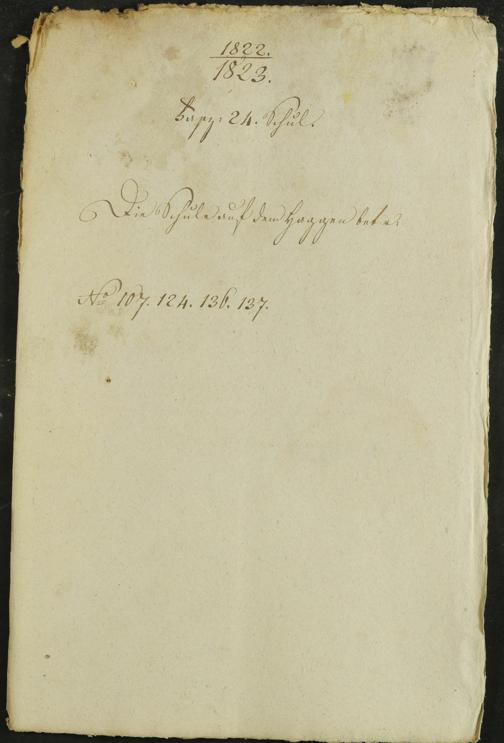 1822.
1823.
Kapp: 24. Schul.
Die Schule auf dem Haggen betr.
No 107. 124. 136. 137.